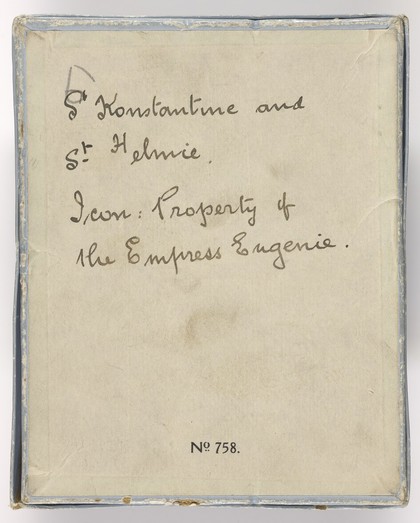 St Konstantine and
St Helmie.
Icon: Property of
the Empress Eugenie.
No 758.